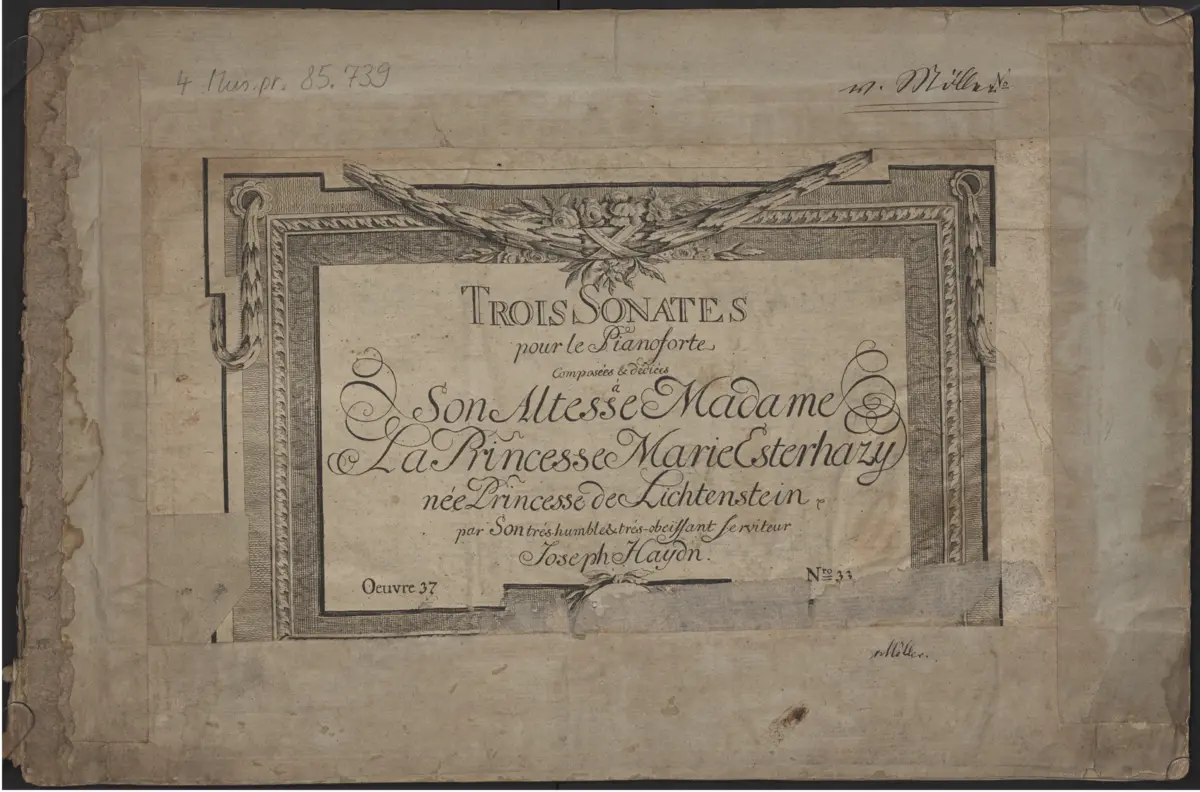 4 Mus.pr. 85.739
v. Möller No
TROIS SONATES
pour le Pianoforte
Composées & dediées
à
Son Altesse Madame
La Princesse Marie Esterhazy
née Princesse de Lichtenstein
par Son trés humble & trés-obeissant serviteur
Joseph Haydn.
Oeuvre 37
Nro 33
vMöller.